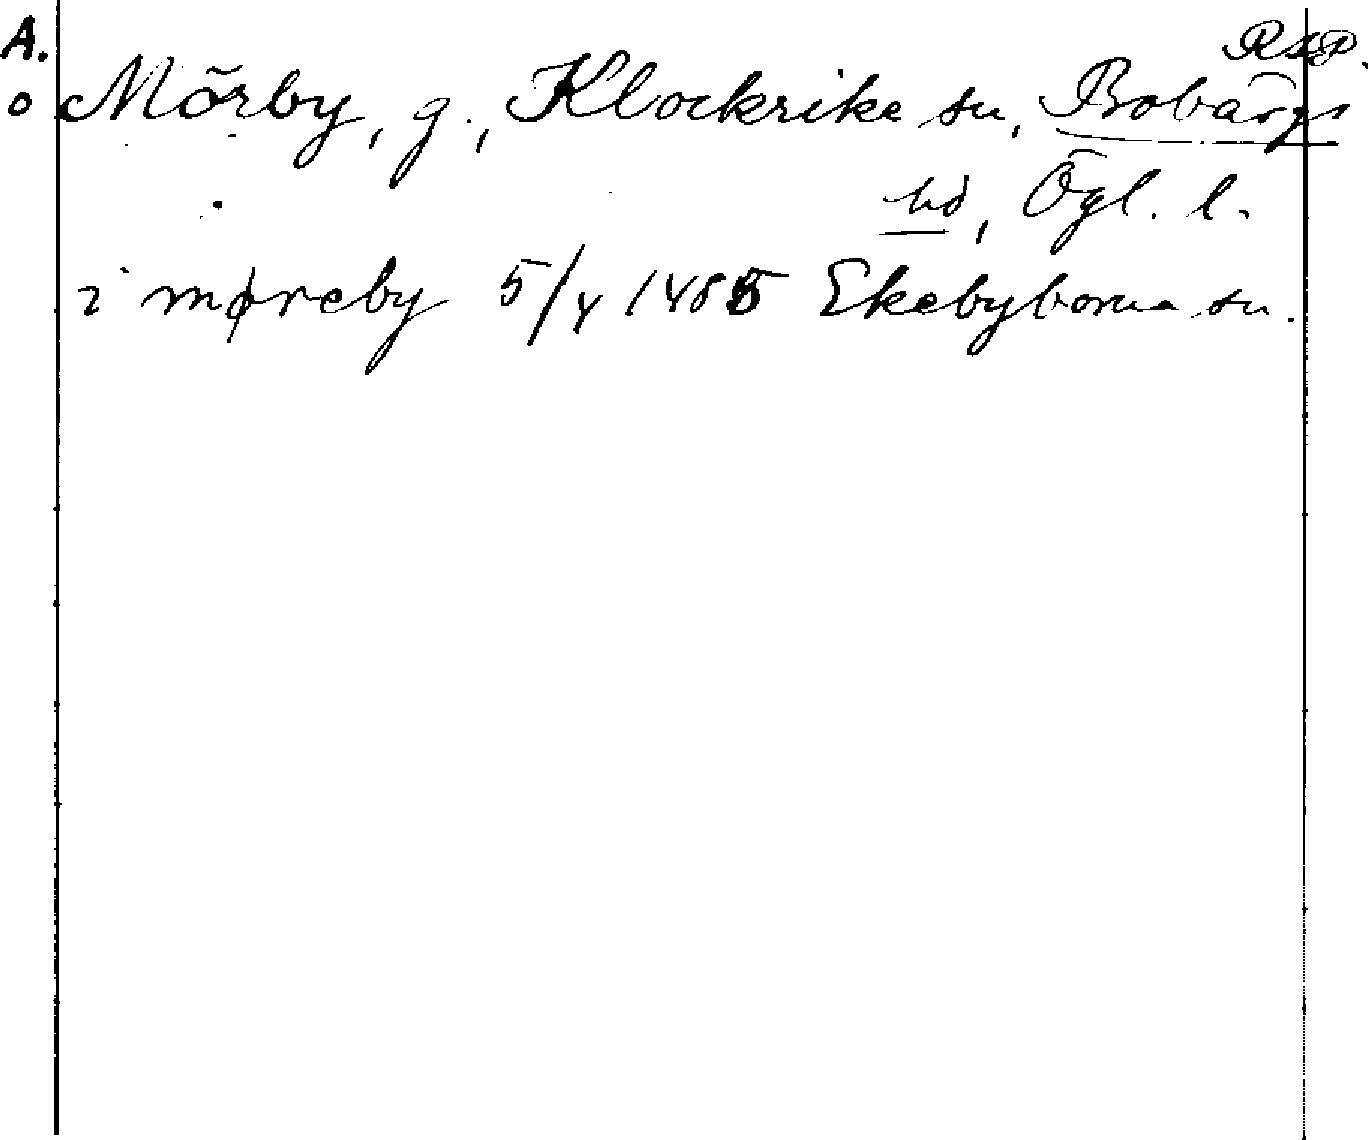 A. RAP.
o Mörby, g., Klockrike sn, Bobärgs
hd, Ögl. l.
i møreby 5/4 1485 Ekebyborna sn.